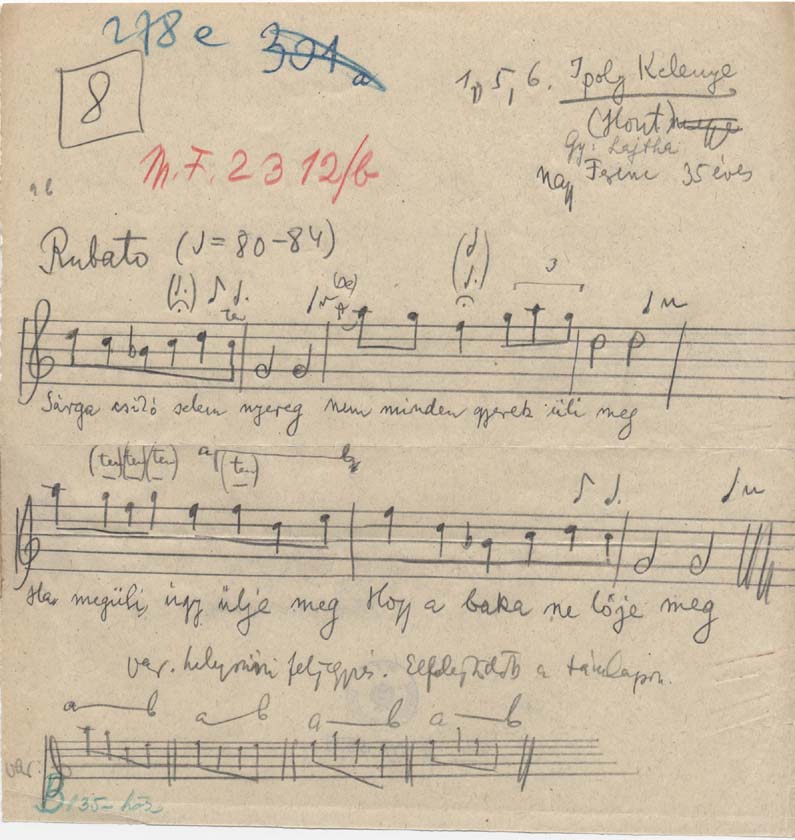 278 e 301 a
8
1, 5, 6. Ipoly Kelenye
(Hont)
Gy: Lajtha
Nagy Ferenc 35 éves
M.F. 2312/b
Rubato (♩= 80-84)
3
Sárga csikó selem nyereg nem minden gyerek üli meg
(ten)(ten)(ten) a (ten) b
Ha megüli, úgy ülje meg Hogy a baka ne lője meg
var. helyszíni feljegyzés. a támlapon.
a b a b a b a b
var:
B 135-höz